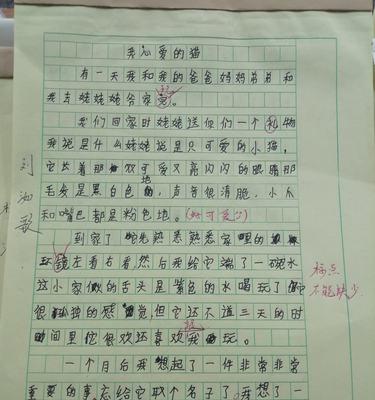 我心爱的猫
有一天我和我的爸爸妈妈弟弟和
我去姥姥姥爷家完。
玩
我们回家时姥姥送给们一个礼物
我说是什么姥姥说是只可爱的小猫,
它长着那双可爱又亮闪闪的眼睛那
毛发是黑白色地,声音很清脆,小爪
和嘴巴都是粉色地。(好可爱心)
到家了 它先熟悉熟悉家里的
环镜左看右看然后我给它端了一碗水
标点
不能缺少
这小家伙的舌头是紫色的水喝玩了
很孤独的感觉但它还不道三天的时
玩
间里它很欢还喜欢我玩。
一个月后我想起了一件非常非常
重要的事。忘给它取个名子了。我想了一
刘
歌